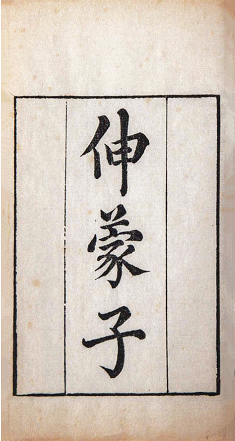 伸蒙子